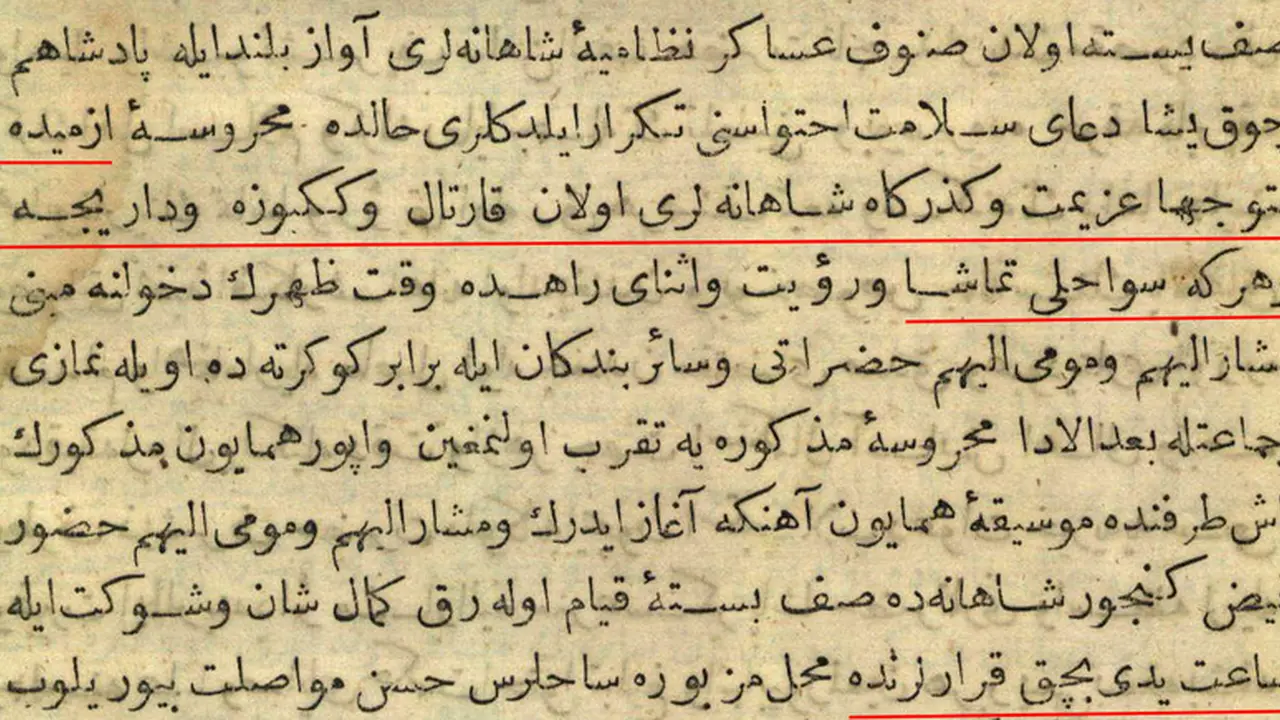 صف بسته اولان صنوف عساكر نظاميهٔ شاهانه‌لرى آواز بلند ايله پادشاهم
چوق يشا دعاى سلامت احتواسنى تكرار ايلدكلرى حالده محروسهٔ ازميده
توجها عزيمت وكذركاه شاهانه لرى اولان قارتال وككبوزه ودار يجه
وهركه سواحلى تماشا ورؤيت واثناى راهده وقت ظهرك دخولنه مبنى
مشاراليهم ومومى اليهم حضراتى وسائر بندكان ايله برابر كوكرته ده اويله نمازى
جماعتله بعدالادا محروسهٔ مذكوره يه تقرب اولنمغين واپور همايون مذكورك
طرفنده موسيقهٔ همايون آهنكه آغاز ايدرك ومشاراليهم ومومى اليهم حضور
كنجور شاهانه‌ده صف بستهٔ قيام اوله رق كمال شان وشوكت ايله
ساعت يدى بچق قرارلرنده محل مزبوره ساحلرس حسن مواصلت بيوريلوب